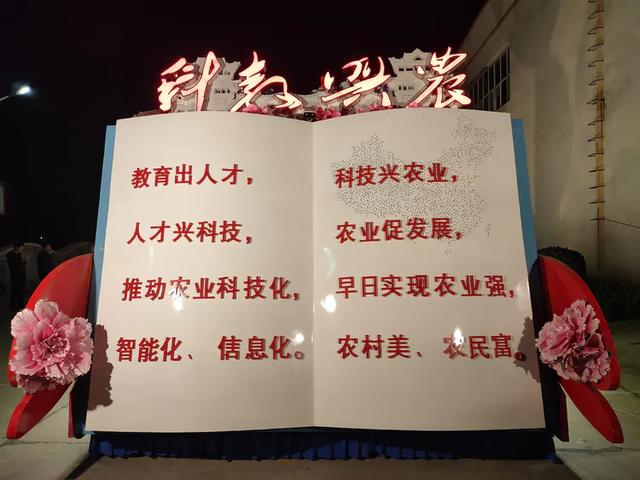 科教兴农
教育出人才，
人才兴科技，
推动农业科技化，
智能化、信息化。
科技兴农业，
农业促发展，
早日实现农业强，
农村美、农民富。